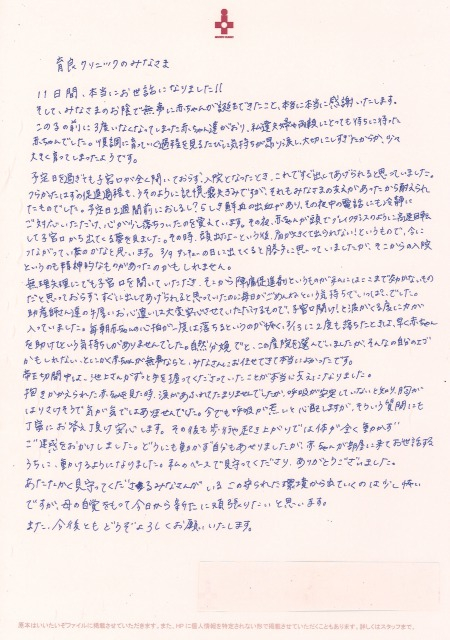 育良クリニックのみなさま
11日間、本当にお世話になりました!!
そして、みなさまのお陰で無事に赤ちゃんが誕生できたこと、本当に本当に感謝いたします。
この子の前に3度いなくなってしまった赤ちゃん達がおり、私達夫婦や両親にとっても待ちに待った
赤ちゃんでした。順調に育っていく過程を見るたびに気持ちが
大きく育ってしまったようです。
予定日を過ぎても子宮口が全く開いておらず、入院となったとき、これですぐ出してあげられると思っていました。
それもみなさまの支えがあったから耐えられ
たものでした。予定日2週間前におしるし?らしき鮮血の出血があり、その夜中の電話にも冷静に
ご対応いただけ、心が少し落ちついたのを覚えています。その夜、赤ちゃんが頭でブレイクダンスのように高速回転
して子宮口から出てくる夢を見ました。その時、頭出たよーという後、肩が大きくて出られない!というもので、今に
つながって、驚のかなと思います。3/9 の日に出てくると勝手に思っていましたが、そこからの入院
というのも精神的なものがあったのかもしれません。
無理矢理にでも子宮口を開いていただき、そこから陣痛促進剤というものがまんにはここまで効かない、その
だと思っておらず、すぐに出してあげられると思っていたのに毎日がごめんねという気持ちでいっぱいでした。
助産師さん達の手厚いお心遣いは大変安心させていただけるもので、子宮口開けと涙がくる度に力が
入っていました。毎朝赤ちゃんの心拍が一度は落ちるというのが怖く、3/13に2度も落ちたときは、早く赤ちゃん
を助けてという気持ちしかありませんでした。自然分娩でと、この産院を選んでいましたが、そんなの自分のエゴ
かもしれない、とにかく赤ちゃんが無事ならと、みなさんにお任せできて本当によかったです。
帝王切開中は、池上さんがずっと手を握ってくださっていたことが本当に支えになりました。
抱きかかえられた赤ちゃんを見た時、涙があふれてたまりませんでしたが、呼吸が安定していないと知り、胸が
はりさけそうで気が気ではありませんでした。今でも呼吸が荒いと心配しますが、そういう質問にも
丁寧にお答え頂け安心します。その後も歩行や起き上がりでは体が全く動かず
ご迷惑をおかけしました。どうにも動かず自分もあせりましたが、赤ちゃんが部屋に来てお世話する
うちに、動けるようになりました。私のペースで見守ってくださり、ありがとうございました。
あたたかく見守ってくださるみなさんがいるこの守られた環境から出ていくのは少し怖い
ですが、母の自覚をもって今日から新たに頑張りたいと思います。
また、今後ともどうぞよろしくお願いいたします。
原本はいいたいぞファイルに掲載させていただきます。また、HPに個人情報を特定されない形で掲載させていただくこともあります。詳しくはスタッフまで。